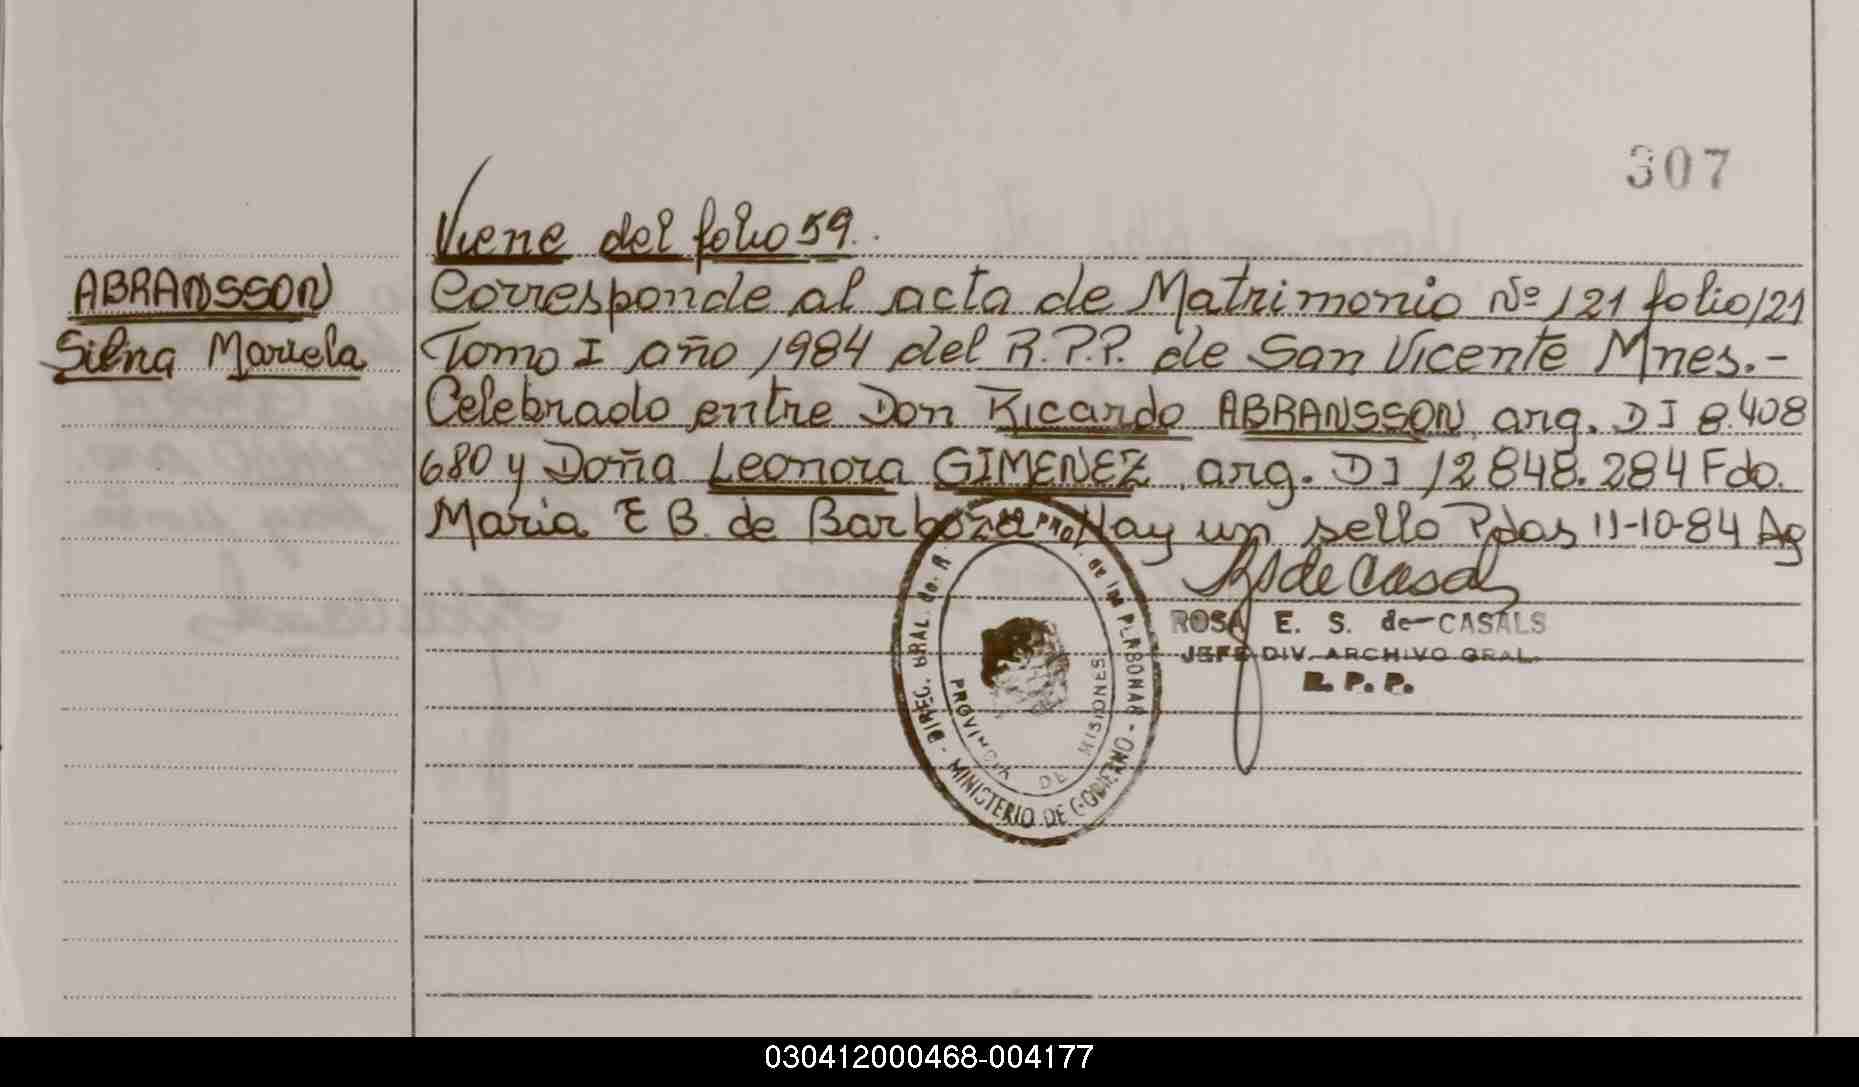 307
Viene del folio 59.
ABRANSSON
Silvia Mariela
Corresponde al acta de Matrimonio Nº 121 folio 121
Tomo I año 1984 del R.P.P. de San Vicente Mnes.-
Celebrado entre Don Ricardo ABRANSSON, arg. DI 8.408
680 y Doña Leonora GIMENEZ, arg. DI 12848.284 Fdo.
Maria E B. de Barboza Hay un sello Pdas 11-10-84 Ag
ROSA E. S. de CASALS
JEFE DIV. ARCHIVO GRAL.
R. P. P.
DIREC. GRAL. de
MINISTERIO DE GOBIERNO
PROVINCIA DE MISIONES
030412000468-004177